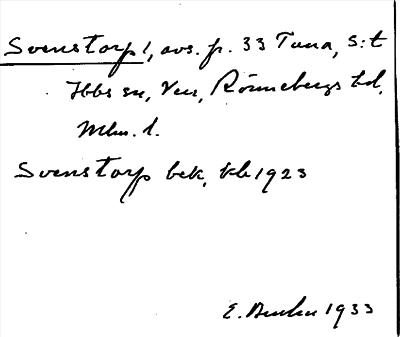 Svenstorp 1, avs. fr. 33 Tuna, S:t
Ibbs sn, Ven, Rönnebergs hd,
Mlm. l.
Svenstorp bek. kb 1923
E. 1933